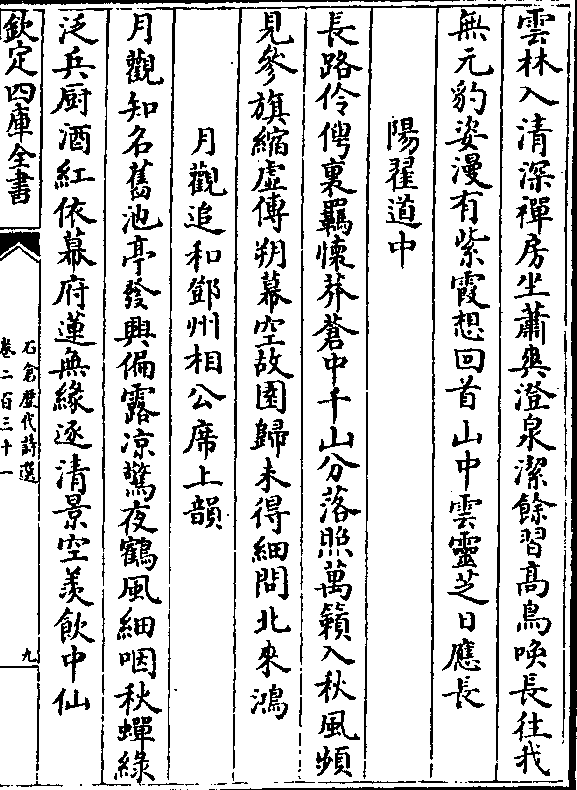 雲林入清深禪房坐蕭爽澄泉潔餘習高鳥喚長往我
無元豹姿漫有紫霞想回首山中雲靈芝日應長
陽翟道中
長路伶俜裏羈懷莽蒼中千山分落照萬籟入秋風頻
見參旗縮虛傳朔幕空故園歸未得細問北來鴻
月觀追和鄧州相公席上韻
月觀知名舊池亭發興偏露凉驚夜鶴風細咽秋蟬綠
泛兵厨酒紅依幕府蓮無緣逐清景空羡飲中仙
欽定四庫全書
石倉歷代詩選
卷二百三十一
九